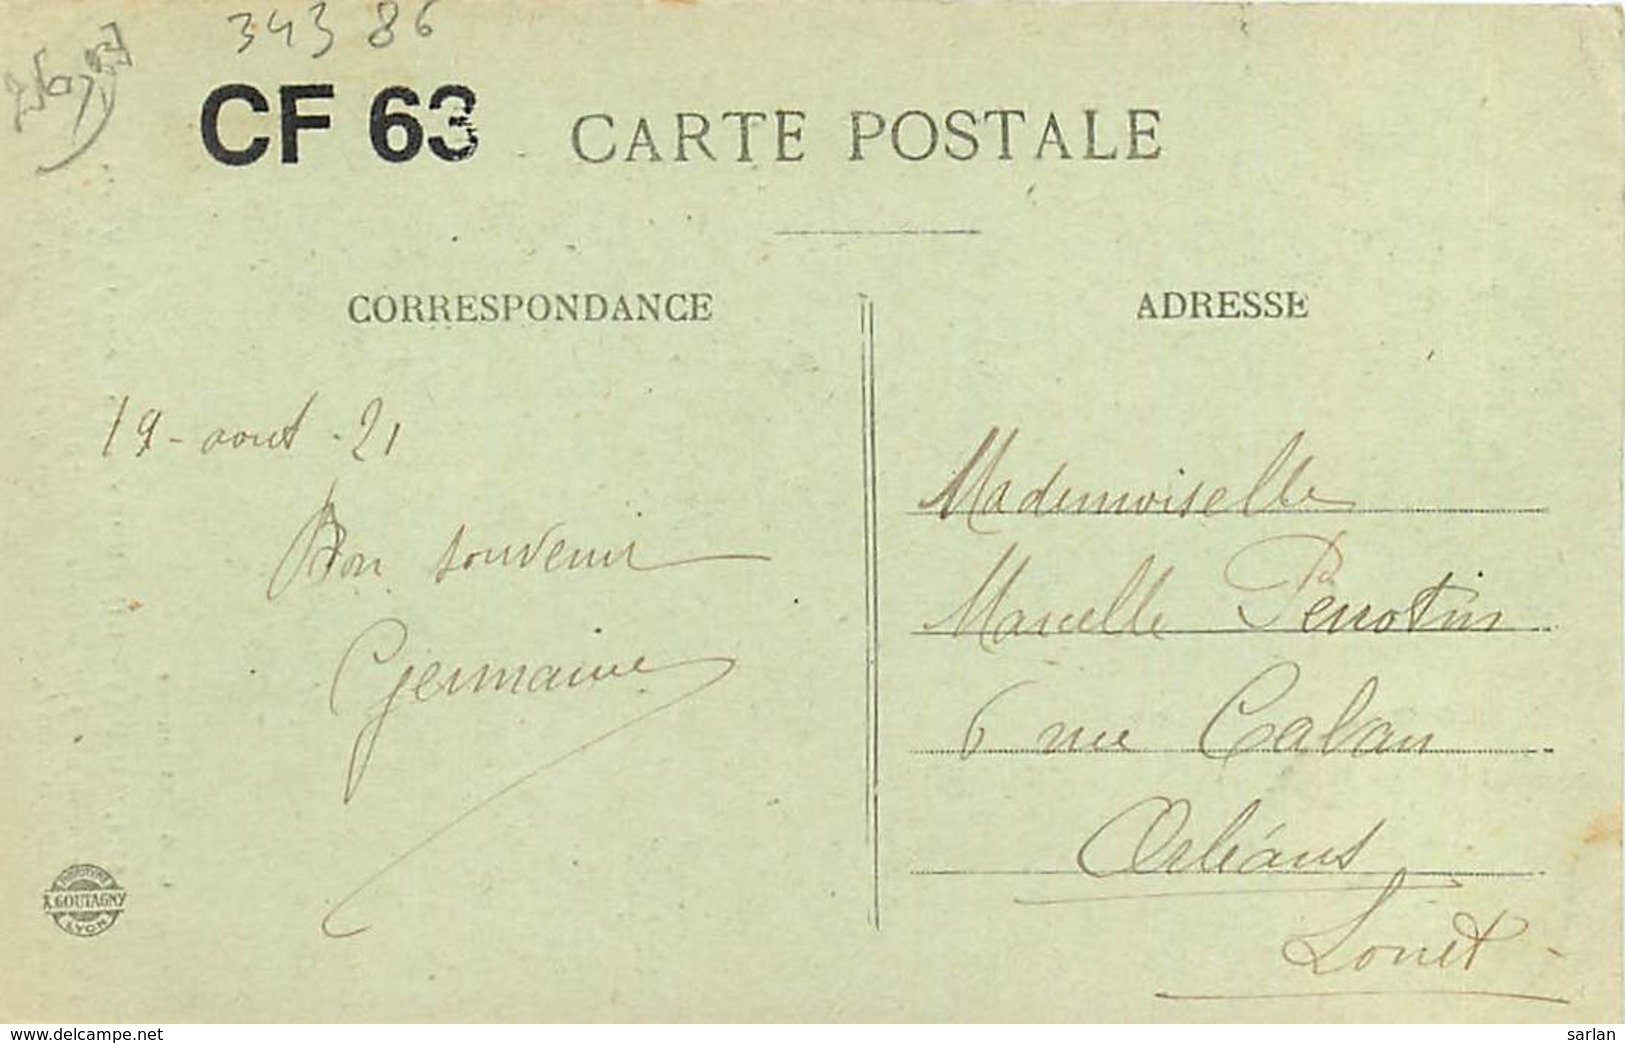 34386
CF 63
CARTE POSTALE
CORRESPONDANCE
ADRESSE
19 - aout - 21
Bon souvenir
Germaine
Mademoiselle
Marcelle Perrotin
6 rue Caban
Orléans
Loiret
PHOTOTYPIE
A. GOUTAGNY
LYON
www.delcampe.net
sarlan